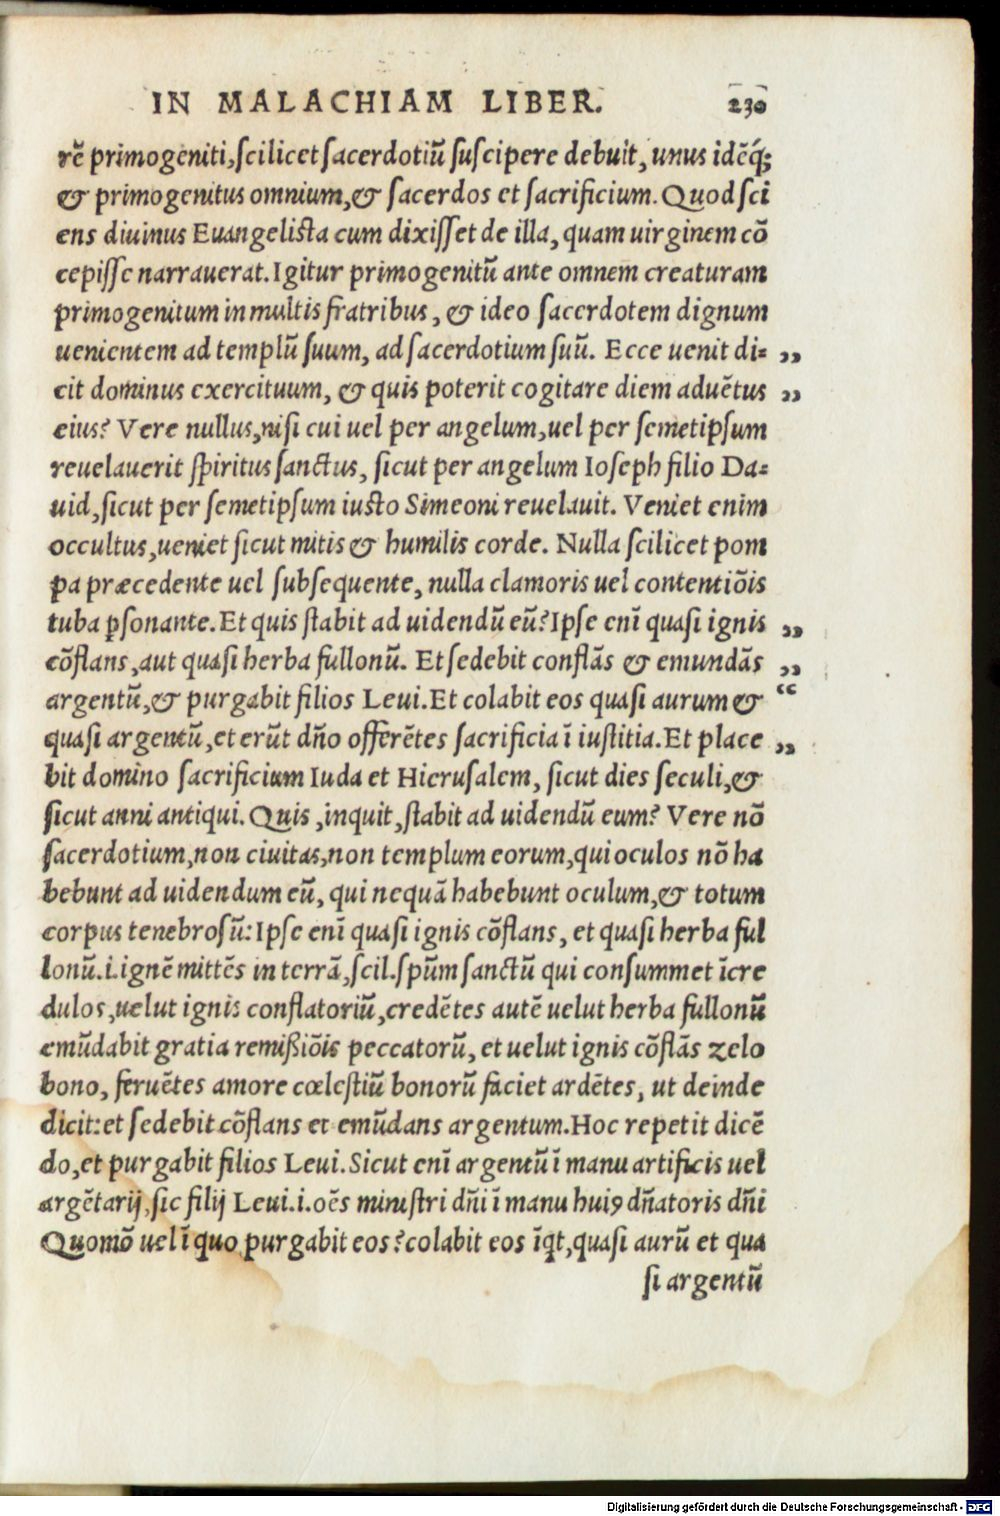 IN MALACHIAM LIBER. 230
rē primogeniti, scilicet sacerdotiū suscipere debuit, unus idēq́;
& primogenitus omnium, & sacerdos et sacrificium. Quod sci
ens diuinus Euangelista cum dixisset de illa, quam uirginem cō
cepisse narrauerat. Igitur primogenitū ante omnem creaturam
primogenitum in multis fratribus, & ideo sacerdotem dignum
uenientem ad templū suum, ad sacerdotium suū. Ecce uenit di= ,,
cit dominus exercituum, & quis poterit cogitare diem aduētus ,,
eius? Vere nullus, nisi cui uel per angelum, uel per semetipsum
reuelauerit spiritus sanctus, sicut per angelum Ioseph filio Da=
uid, sicut per semetipsum iusto Simeoni reuelauit. Veniet enim
occultus, ueniet sicut mitis & humilis corde. Nulla scilicet pom
pa præcedente uel subsequente, nulla clamoris uel contentiōis
tuba ꝑsonante. Et quis stabit ad uidendū eū? Ipse enī quasi ignis ,,
cōflans, aut quasi herba fullonū. Et sedebit conflās & emundās ,,
argentū, & purgabit filios Leui. Et colabit eos quasi aurum & “
quasi argentū, et erūt dño offerētes sacrificia ī iustitia. Et place ,,
bit domino sacrificium Iuda et Hierusalem, sicut dies seculi, &
sicut anni antiqui. Quis, inquit, stabit ad uidendū eum? Vere nō
sacerdotium, non ciuitas, non templum eorum, qui oculos nō ha
bebunt ad uidendum eū, qui nequā habebunt oculum, & totum
corpus tenebrosū: Ipse enī quasi ignis cōflans, et quasi herba ful
lonū. i. ignē mittēs in terrā, scil. spūm sanctū qui consummet īcre
dulos, uelut ignis conflatoriū, credētes autē uelut herba fullonū
emūdabit gratia remißiōis peccatorū, et uelut ignis cōflās zelo
bono, feruētes amore cœlestiū bonorū faciet ardētes, ut deinde
dicit: et sedebit cōflans et emūdans argentum. Hoc repetit dicē
do, et purgabit filios Leui. Sicut enī argentū ī manu artificis uel
argētarij, sic filij Leui. i. oēs ministri dñi ī manu huiꝯ dñatoris dñi
Quomō uel ī quo purgabit eos? colabit eos īqt, quasi aurū et qua
si argentū
Digitalisierung gefördert durch die Deutsche Forschungsgemeinschaft - DFG